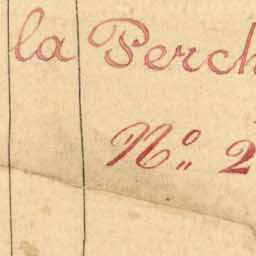 la Perch
Nº. 2